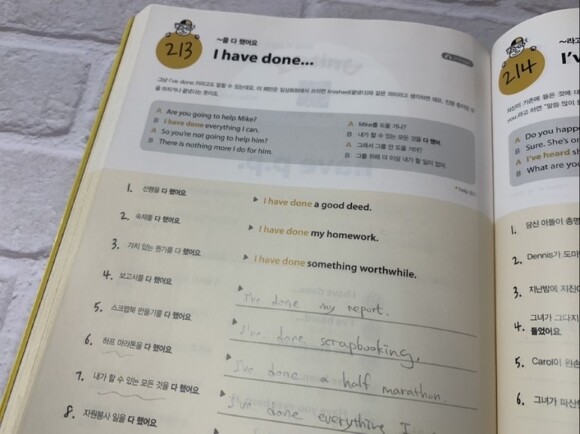 213
~을 다 했어요
I have done...
A Are you going to help Mike?
B I have done everything I can.
A So you're not going to help him?
B There is nothing more I do for him.
A Mike를 도울 거니?
B 내가 할 수 있는 모든 것을 다 했어.
A 그래서 그를 안 도울 거야?
B 그를 위해 더 이상 내가 할 일이 없어.
1. 선행을 다 했어요
▶ I have done a good deed.
2. 숙제를 다 했어요
▶ I have done my homework.
3. 가치 있는 뭔가를 다 했어요
▶ I have done something worthwhile.
4. 보고서를 다 했어요
▶ I've done my report.
5. 스크랩북 만들기를 다 했어요
▶ I've done scrapbooking.
6. 하프 마라톤을 다 했어요
▶ I've done a half marathon
7. 내가 할 수 있는 모든 것을 다 했어요
▶ I've done everything I
8. 자원봉사 일을 다 했어요
214
~라고
I'v
A Do you happ
B Sure. She's or
A I've heard s
B What are you
1. 당신 아들이 총명
2. Dennis가 도마
3. 지난밤에 지진이
4. 그녀가 그다지
들었어요.
5. Carol이 완
6. 그녀가 파산